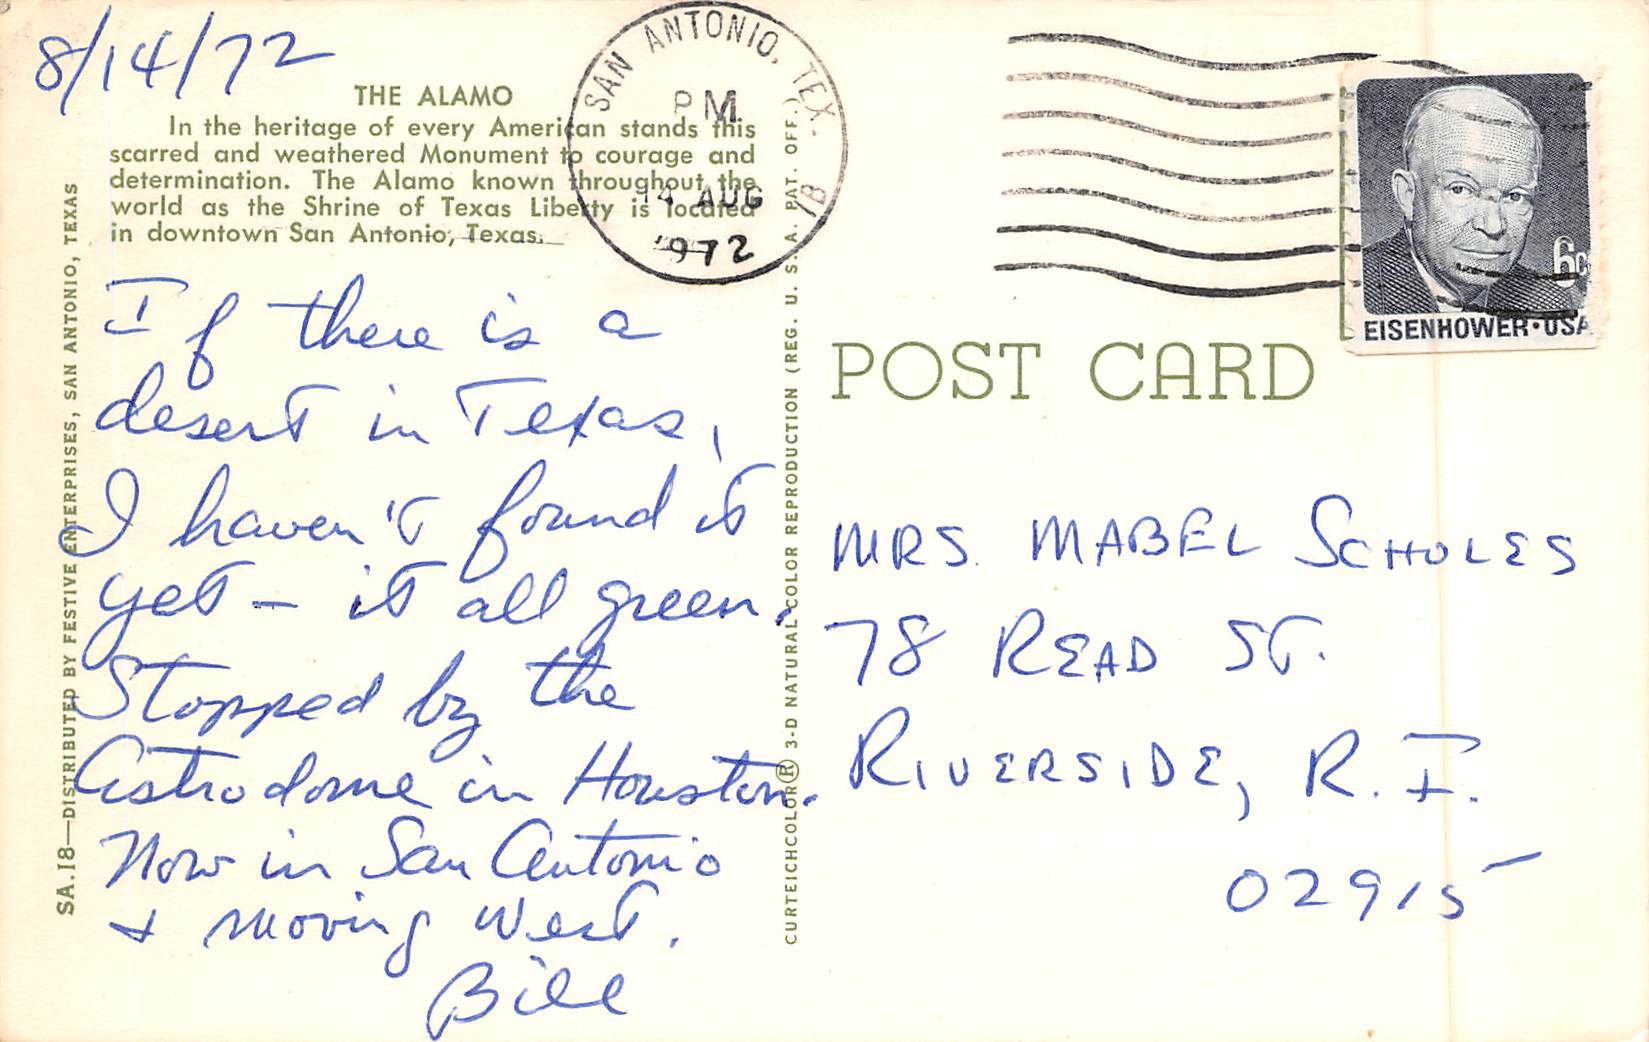 8/14/72
THE ALAMO
In the heritage of every American stands this
scarred and weathered Monument to courage and
determination. The Alamo known throughout the
world as the Shrine of Texas Liberty is located
in downtown San Antonio, Texas.
If there is a
desert in Texas,
I haven't found it
yet – it all green.
Stopped by the
Astrodome in Houston.
Now in San Antonio
& moving West.
Bill
SA.18—DISTRIBUTED BY FESTIVE ENTERPRISES, SAN ANTONIO, TEXAS
CURTEICHCOLOR® 3-D NATURAL COLOR REPRODUCTION (REG. U. S. A. PAT. OFF.)
SAN ANTONIO, TEX.
PM
14 AUG
1972
1B
6c
EISENHOWER·USA
POST CARD
MRS. MABEL SCHOLES
78 READ ST.
RIVERSIDE, R. I.
02915